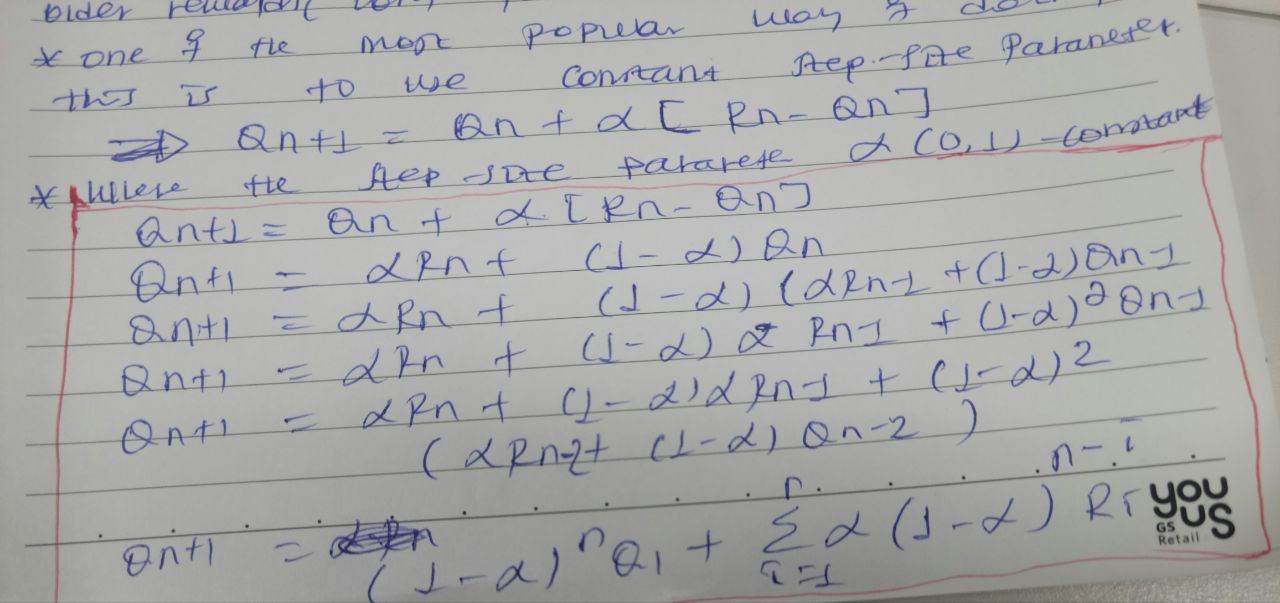 older
* one of the most popular way of
this is to use constant step-size Parameter.
⇒ Qn+1 = Qn + α [ Rn - Qn ]
* Where the step-size paramete α (0,1) - constant
Qn+1 = Qn + α [ Rn - Qn ]
Qn+1 = α Rn + (1-α) Qn
Qn+1 = α Rn + (1-α) (α Rn-1 + (1-α) Qn-1
Qn+1 = α Rn + (1-α) α Rn-1 + (1-α)² Qn-1
Qn+1 = α Rn + (1-α) α Rn-1 + (1-α)²
(α Rn-2 + (1-α) Qn-2 )
. . . . . . . . . . . . . .
Qn+1 = (1-α)ⁿ Q1 + Σ n i=1 α (1-α) n-i Ri
you
us
GS
Retail